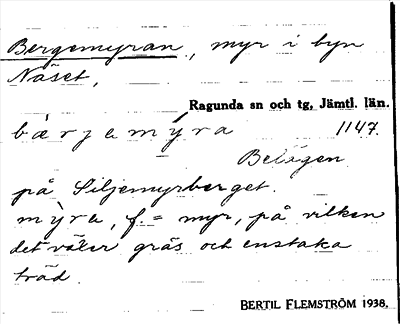 Bergemyran, myr i byn
Näset,
Ragunda sn och tg, Jämtl. län.
bærjemýra 1147.
Belägen
på Siljemyrberget.
mỳra, f. = myr, på vilken
det växer gräs och enstaka
träd.
BERTIL FLEMSTRÖM 1938.